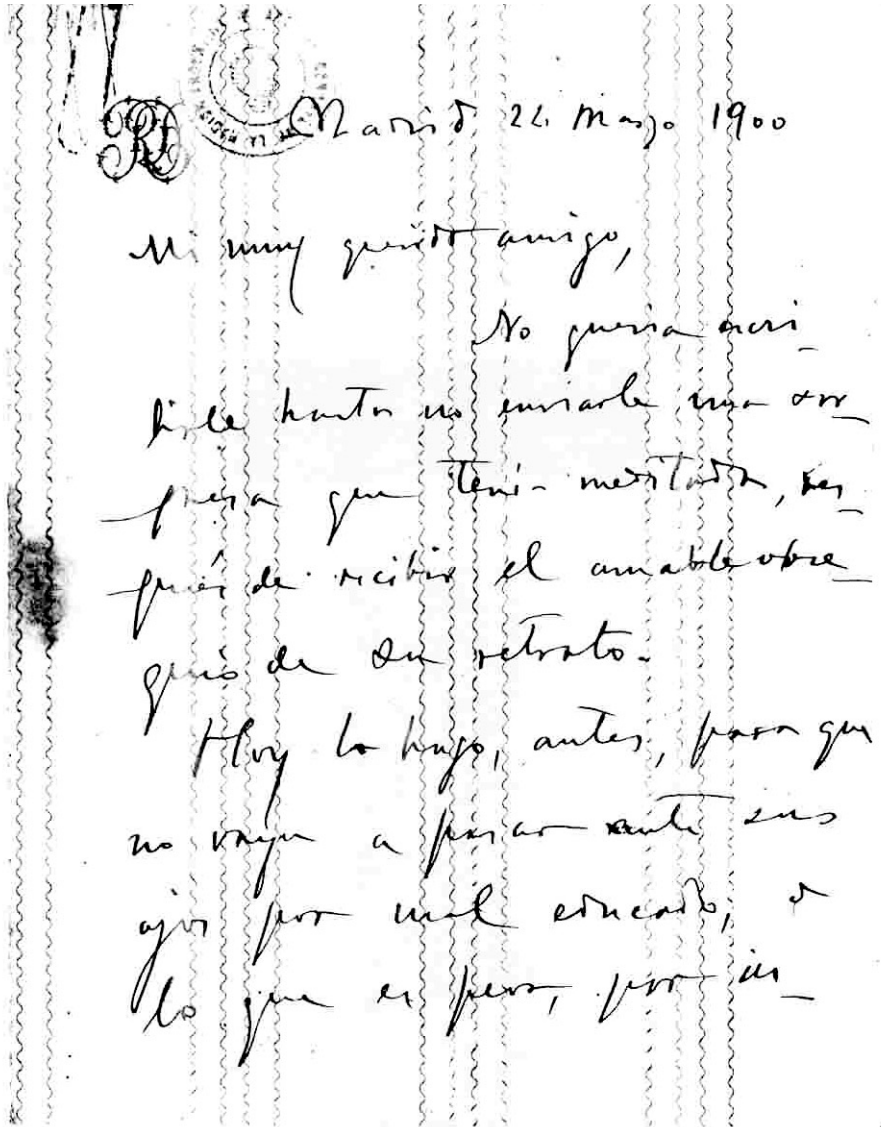 Madrid 22 Marzo 1900
Mi muy querido amigo,
No queria escri_
birle hasta no enviarle una sor_
_presa que tenia meditada, des_
_pués de recibir el amable obse_
quio de su retrato.
Hoy lo hago, antes, para que
no vaya a pasar ante sus
ojos por mal educado, ó
lo que es peor, por in_